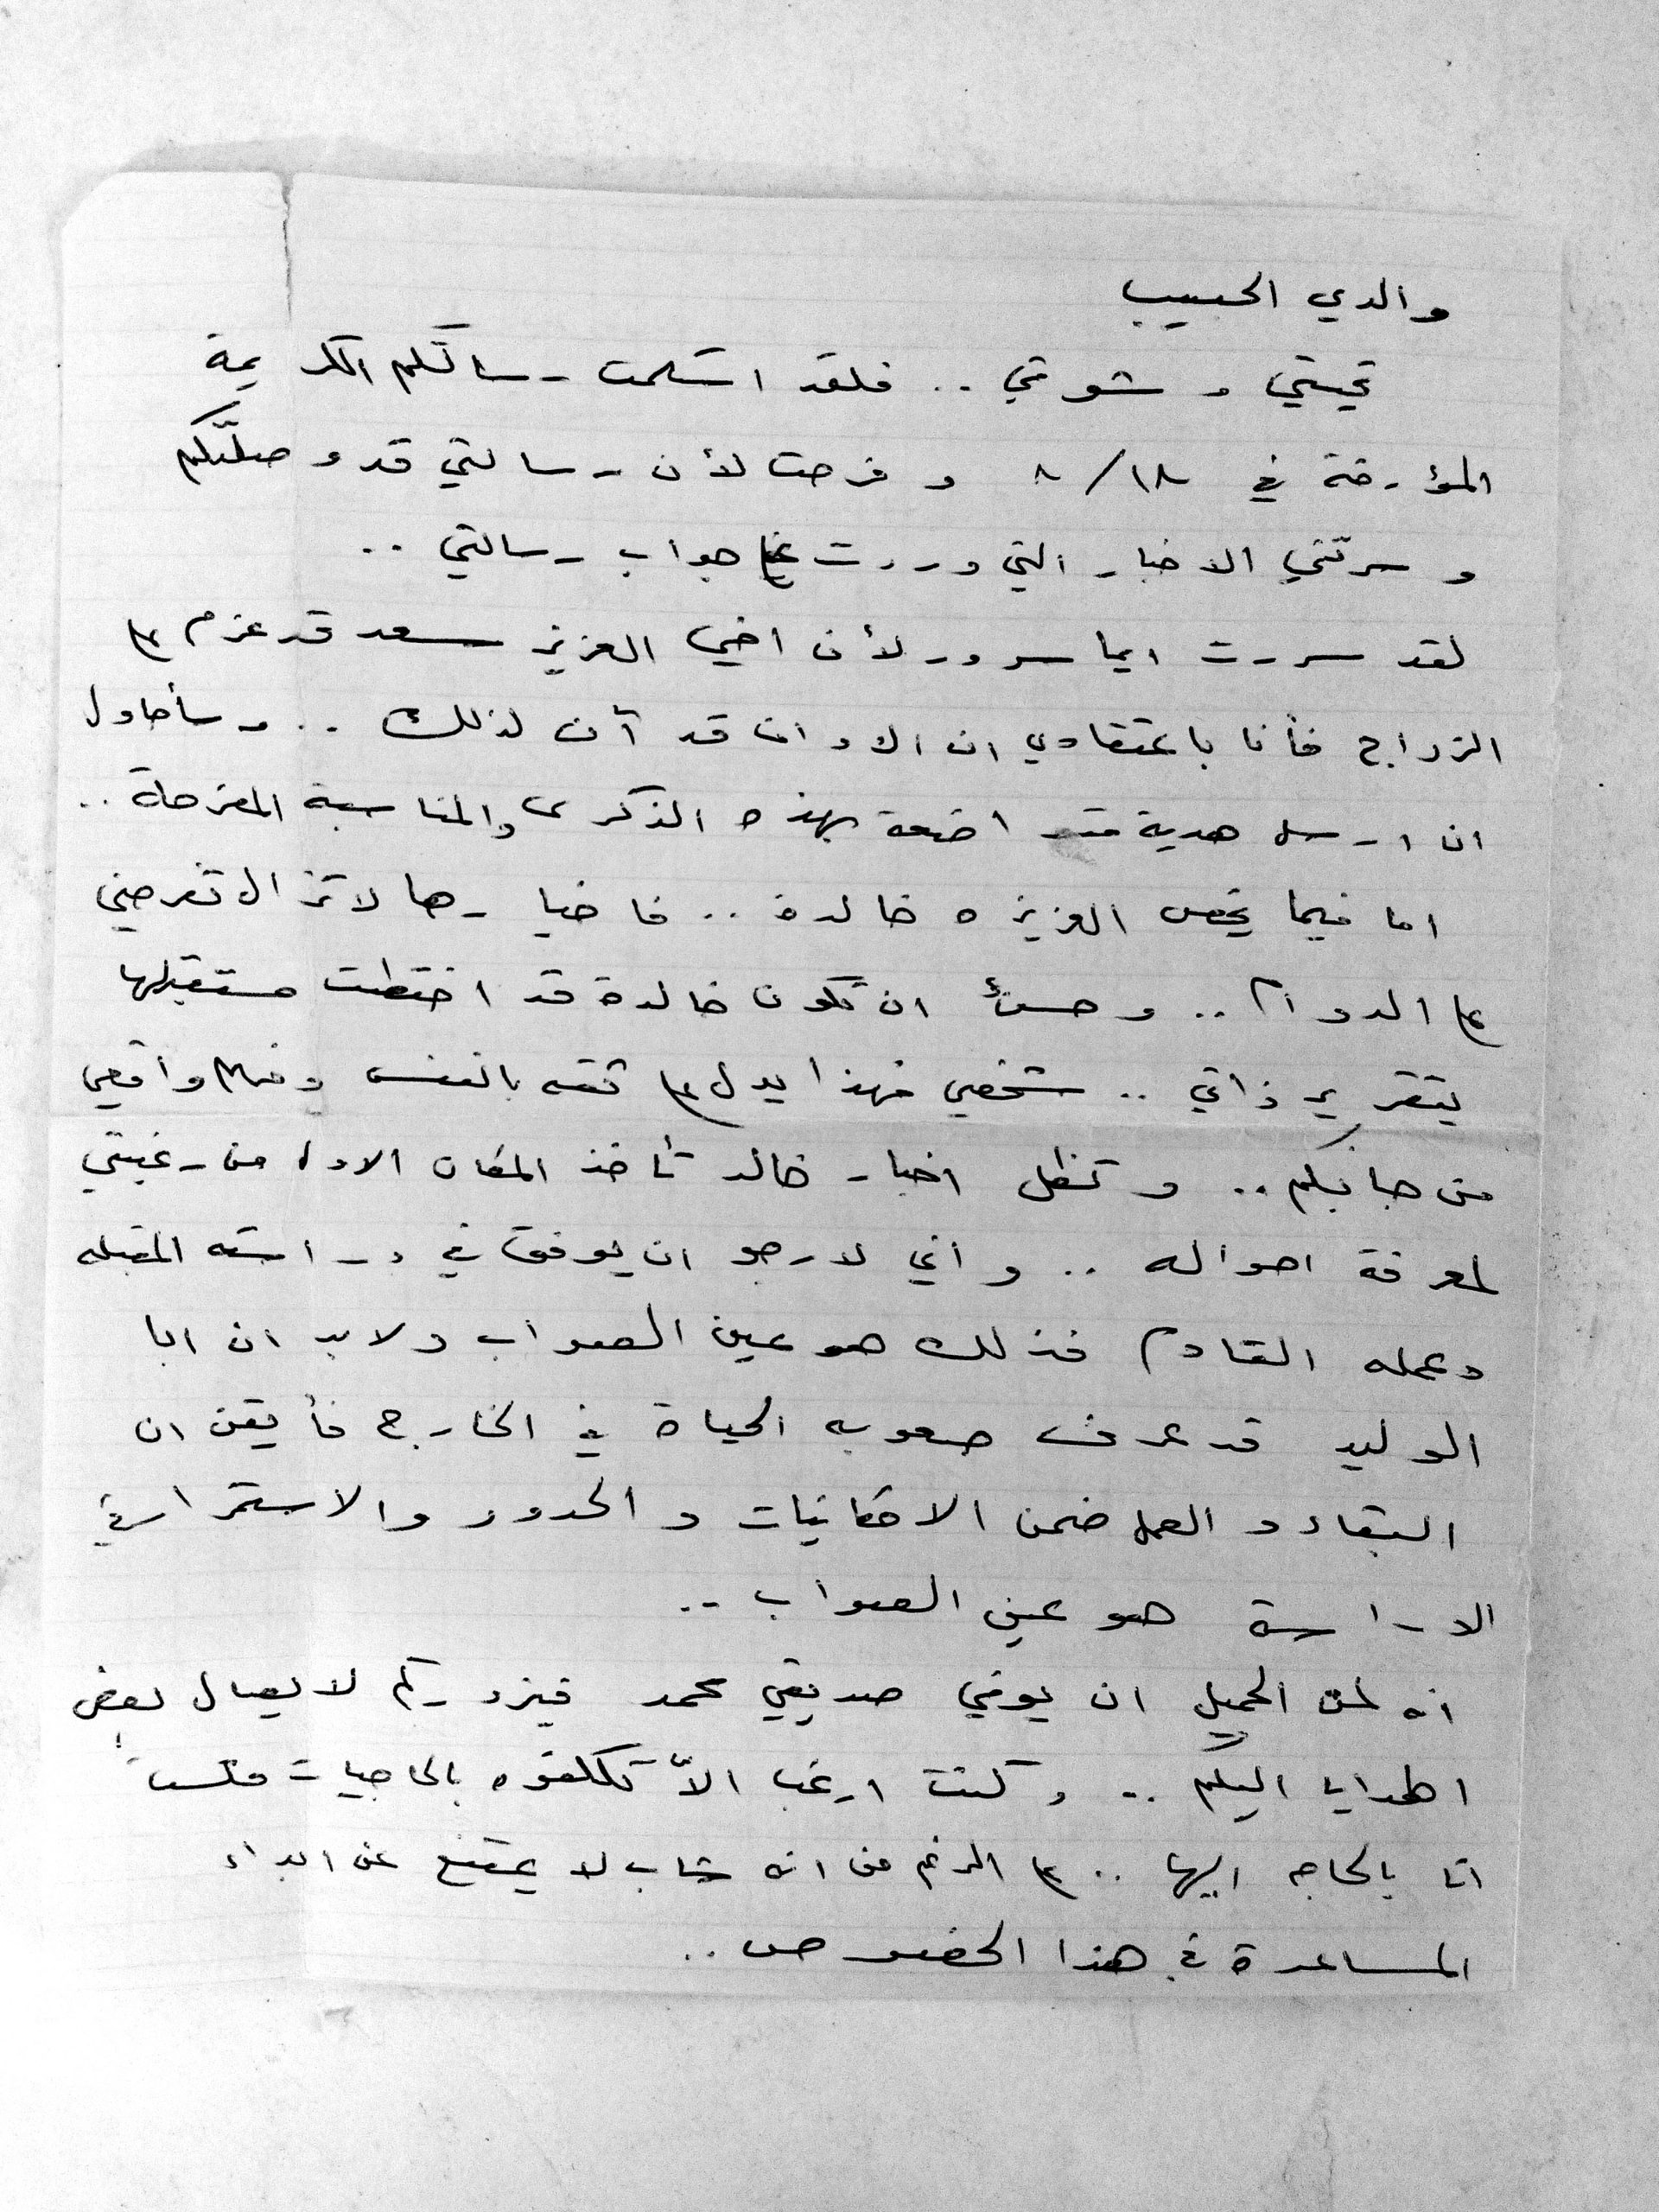 والدي الحبيب
تحيتي و شوقي .. فلقد استلمت رسالتكم الكريمة
المؤرخة في ١٨/٨ و فرحت لأن رسالتي قد وصلتكم
و سرتني الاخبار التي وردت جواب رسالتي ..
لقد سررت ايما سرور لأن اخي العزيز سعد قد عزم على
الزواج فأنا باعتقادي ان الاوان قد آن لذلك .. وسأحاول
ان ارسل هدية متواضعة بهذه الذكرى والمناسبة المفرحة ..
اما فيما يخص العزيزه خالدة .. فاخبارها لا تزال تفرحني
على الدوام .. وحسن ان تكون خالدة قد اختطت مستقبلها
بتقرير ذاتي .. شخصي فهذا يدل على ثقه بالنفس وفهم واقعي
من جانبكم .. وتظل اخبار خالد تأخذ المكان الاول من رغبتي
لمعرفة احواله .. واني لارجو ان يوفق في دراسته المقبله
وعمله القادم فذلك هو عين الصواب ولابد ان ابا
الوليد قد عرف صعوبه الحياة في الخارج فأيقن ان
البقاء و العمل ضمن الامكانيات و الحدود والاستمرار في
الدراسة هو عين الصواب ..
انه لمن الجميل ان يوفي صديقي محمد فيزوركم لايصال بعض
الهدايا اليكم .. وكنت ارغب الاّ تكلفوه بالحاجيات فلست
انا بالحاجه اليها .. على الرغم من انه شاب لا يمتنع عن ابداء
المساعدة في هذا الخصوص ..